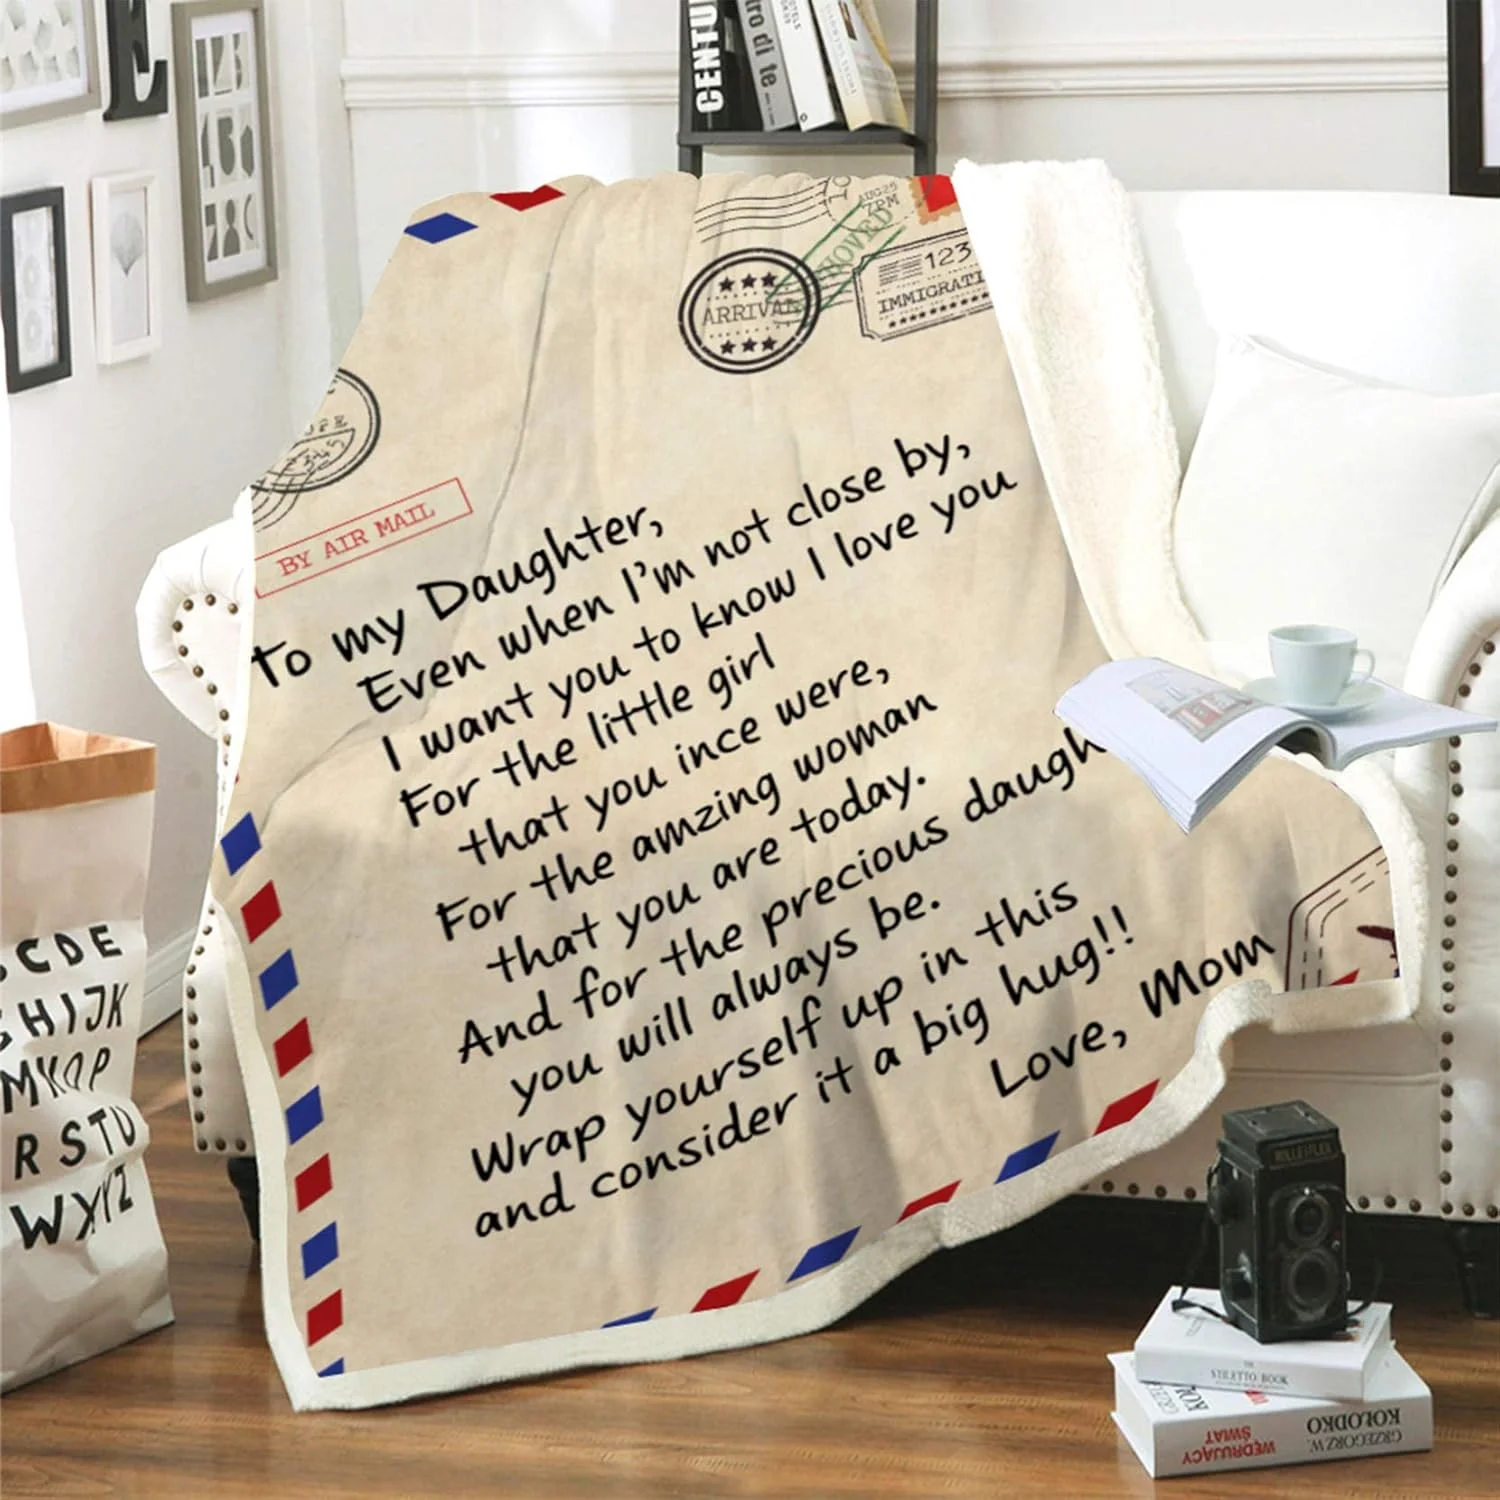 CENTU
E
AUG 25
7PM
ARRIVAL
123
IMMIGRATI
BY AIR MAIL
To my Daughter,
Even when I'm not close by,
I want you to know I love you
For the little girl
that you ince were,
For the amzing woman
that you are today.
And for the precious daugh
you will always be.
Wrap yourself up in this
and consider it a big hug!!
Love, Mom
CDE
HIJK
R STU
WXYZ
ROLLEIFLEX
STILETTO BOOK
GRZEGORZ W. KOŁODKO
WĘDRUJĄCY ŚWIAT